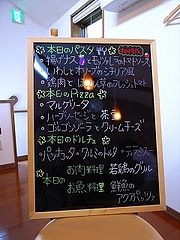 本日のパスタ
揚げナスとモッツァレラのトマトソース
いわしとオリーブのシチリア風
鶏肉とほうれん草のフレッシュトマト
本日のPizza
・マルゲリータ
・ハーブソーセージと
・ゴルゴンゾーラとクリームチーズ
本日のドルチェ
パンナコッタ・クルミのトルタ・
本日の
お肉料理 若鶏のグリル
お魚料理 鮮魚の
アクアパッツァ